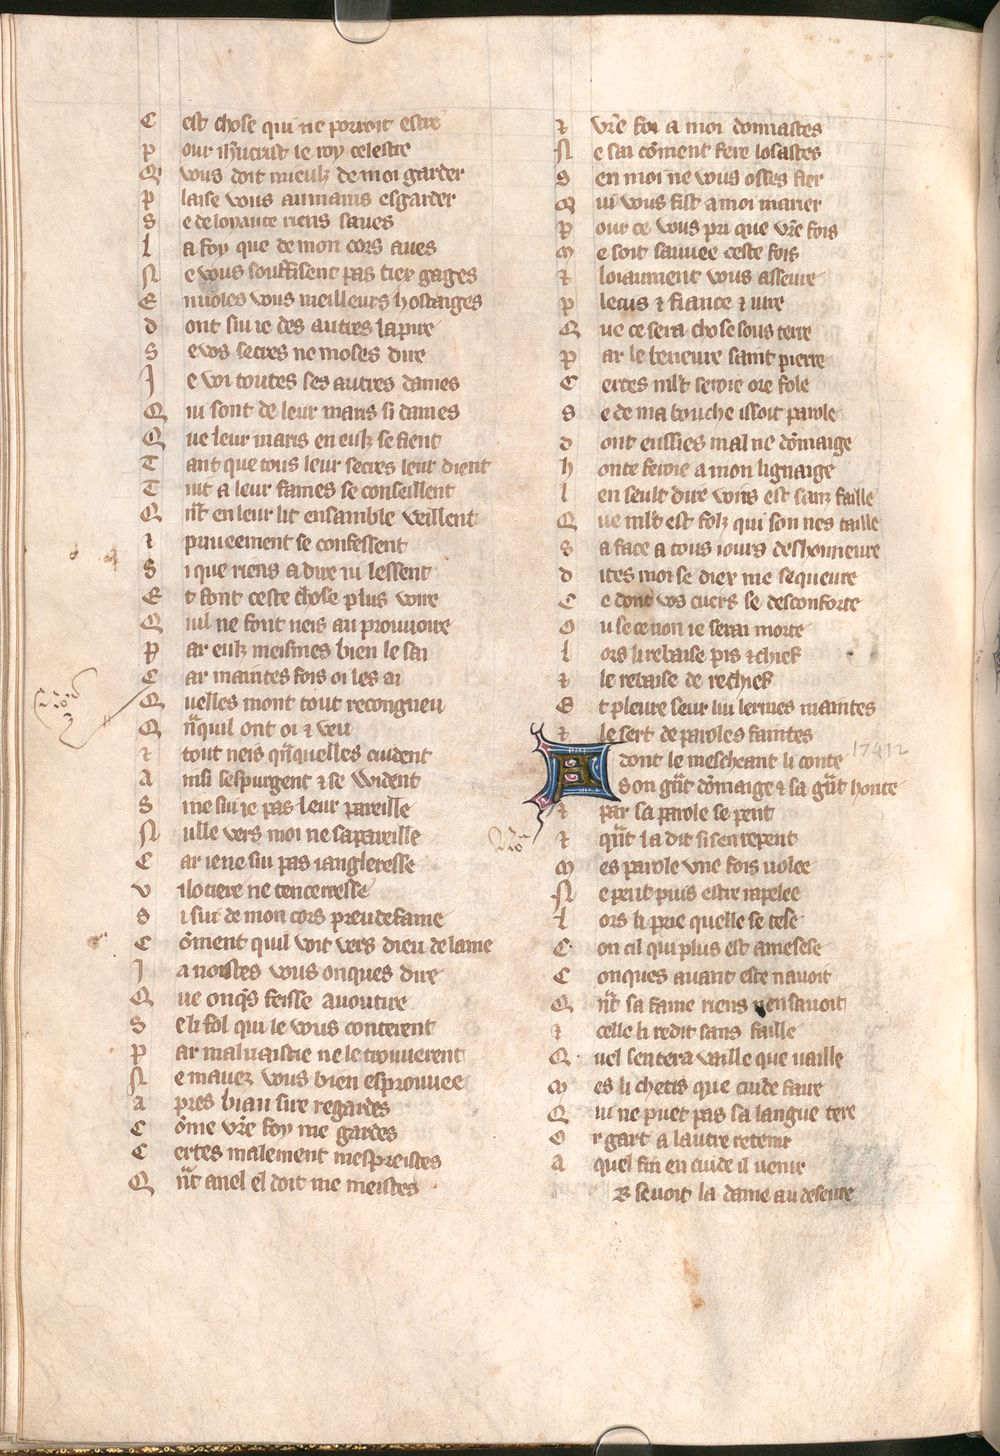 C est chose qui ne porroit estre
p our ihucrist le roy celestre
Q vous doit mieulz de moi garder
p laise vous aumains esgarder
S e de loyaute riens saues
l a foy que de mon cors aues
N e vous souffisent pas tiex gages
E nuoles vous meilleurs hostaiges
d ont sui ie des autres la pire
S e vos secres ne moses dire
J e voi toutes ses autres dames
Q ui sont de leur maris si dames
Q ue leur maris en eulz se fient
T ant que tous leur secres leur dient
T uit a leur fames se conseillent
Q nt en leur lit ensamble veillent
⁊ priueement se confessent
S i que riens a dire ni lessent
E t font ceste chose plus voire
Q uil ne font neis au prouuoire
P ar eulz meismes bien le sai
C ar maintes fois oi les ai
Q uelles mont tout recongneu
Q nquil ont oi ⁊ veu
⁊ tout neis qnquelles cuident
A insi sespurgent ⁊ se wident
S i ne sui ie pas leur pareille
N ulle vers moi ne sapareille
C ar ie ne sui pas iangleresse
v ilotiere ne tencerresse
S i sui de mon cors preudefame
C oment quil voit vers dieu de lame
J a noistes vous onques dire
Q ue onqs feisse auoutire
S e li fol qui le vous conterent
P ar maluaistie ne le trouuerent
N e mauez vous bien esprouuee
a pres biau sire regardes
C ome vre foy me gardes
C ertes malement mespreistes
Q nt anel el doit me meistes
⁊ vre foi a moi donnastes
N e sai coment fere losastes
S en moi ne vous osses fier
Q ui vous fist a moi marier
P our ce vous pri que vre fois
M e soit sauuee ceste fois
⁊ loiaument vous asseure
P lecus ⁊ fiance ⁊ iure
Q ue ce sera chose sous terre
P ar le beneure saint pierre
C ertes mlt seroie ore fole
S e de ma bouche issoit parole
d ont eussies mal ne domaige
h onte feroie a mon lignaige
l en seult dire voirs est sanz faille
Q ue mlt est folz qui son nes taille
S a face a tous iours deshonneure
d ites moi se diex me sequeure
C e dont vos cuers se desconforte
O u se ce non ie serai morte
l ors li rebaise pis ⁊ chief
⁊ le rebaise de rechief
E t pleure seur lui lermes maintes
⁊ le sert de paroles faintes
A dont le mescheant li conte
17412
S on gnt domaige ⁊ sa gnt honte
⁊ par sa parole se pent
⁊ qnt la dit si sen repent
M es parole vne fois uolee
N e peut puis estre rapelee
L ors li prie quelle se tese
C on cil qui plus est amesese
C onques auant este nauoit
Q nt sa fame riens nen sauoit
⁊ celle li redit sans faille
Q uel sen tera vaille que uaille
M es li chetis que cuide faire
Q ui ne puet pas sa langue tere
O r gart a lautre retenir
A quel fin en cuide il uenir
R se uoit la dame au deseure